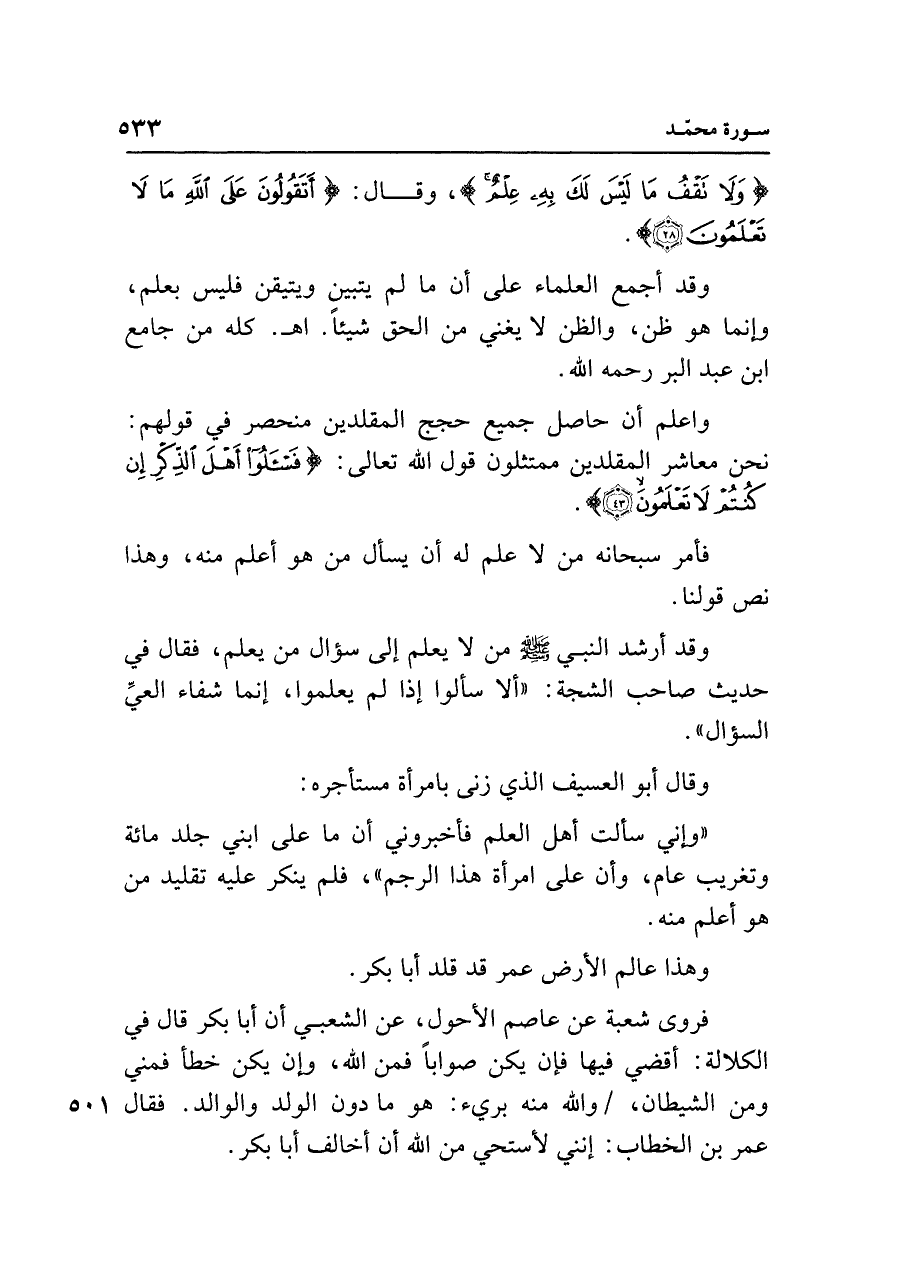 سورة محمّد ٥٣٣
﴿ وَلَا تَقْفُ مَا لَيْسَ لَكَ بِهِۦ عِلْمٌۚ ﴾، وقـــال: ﴿ أَتَقُولُونَ عَلَى ٱللَّهِ مَا لَا
تَعْلَمُونَ ﴿٢٨﴾﴾ .
وقد أجمع العلماء على أن ما لم يتبين ويتيقن فليس بعلم،
وإنما هو ظن، والظن لا يغني من الحق شيئاً. اهـ. كله من جامع
ابن عبد البر رحمه الله.
واعلم أن حاصل جميع حجج المقلدين منحصر في قولهم:
نحن معاشر المقلدين ممتثلون قول الله تعالى: ﴿ فَسْـَٔلُوٓا۟ أَهْلَ ٱلذِّكْرِ إِن
كُنتُمْ لَا تَعْلَمُونَۙ ﴿٤٣﴾﴾ .
فأمر سبحانه من لا علم له أن يسأل من هو أعلم منه، وهذا
نص قولنا.
وقد أرشد النبي ﷺ من لا يعلم إلى سؤال من يعلم، فقال في
حديث صاحب الشجة: «ألا سألوا إذا لم يعلموا، إنما شفاء العيِّ
السؤال».
وقال أبو العسيف الذي زنى بامرأة مستأجره:
«وإني سألت أهل العلم فأخبروني أن ما على ابني جلد مائة
وتغريب عام، وأن على امرأة هذا الرجم»، فلم ينكر عليه تقليد من
هو أعلم منه.
وهذا عالم الأرض عمر قد قلد أبا بكر.
فروى شعبة عن عاصم الأحول، عن الشعبي أن أبا بكر قال في
الكلالة: أقضي فيها فإن يكن صواباً فمن الله، وإن يكن خطأ فمني
ومن الشيطان، /والله منه بريء: هو ما دون الولد والوالد. فقال ٥٠١
عمر بن الخطاب: إنني لأستحي من الله أن أخالف أبا بكر.